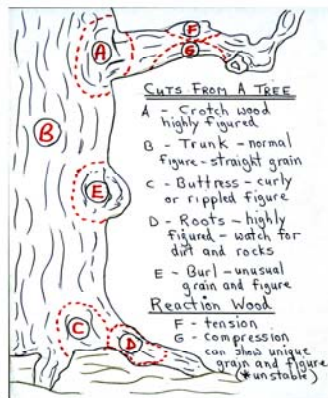 A
F
G
B
E
C
D
CUTS FROM A TREE
A - Crotch wood
highly figured
B - Trunk - normal
figure - straight grain
C - Buttress - curly
or rippled figure
D - Roots - highly
figured - watch for
dirt and rocks
E - Burl - unusual
grain and figure
Reaction Wood
F - tension
G - compression
can show unique
grain and figure
(*unstable)